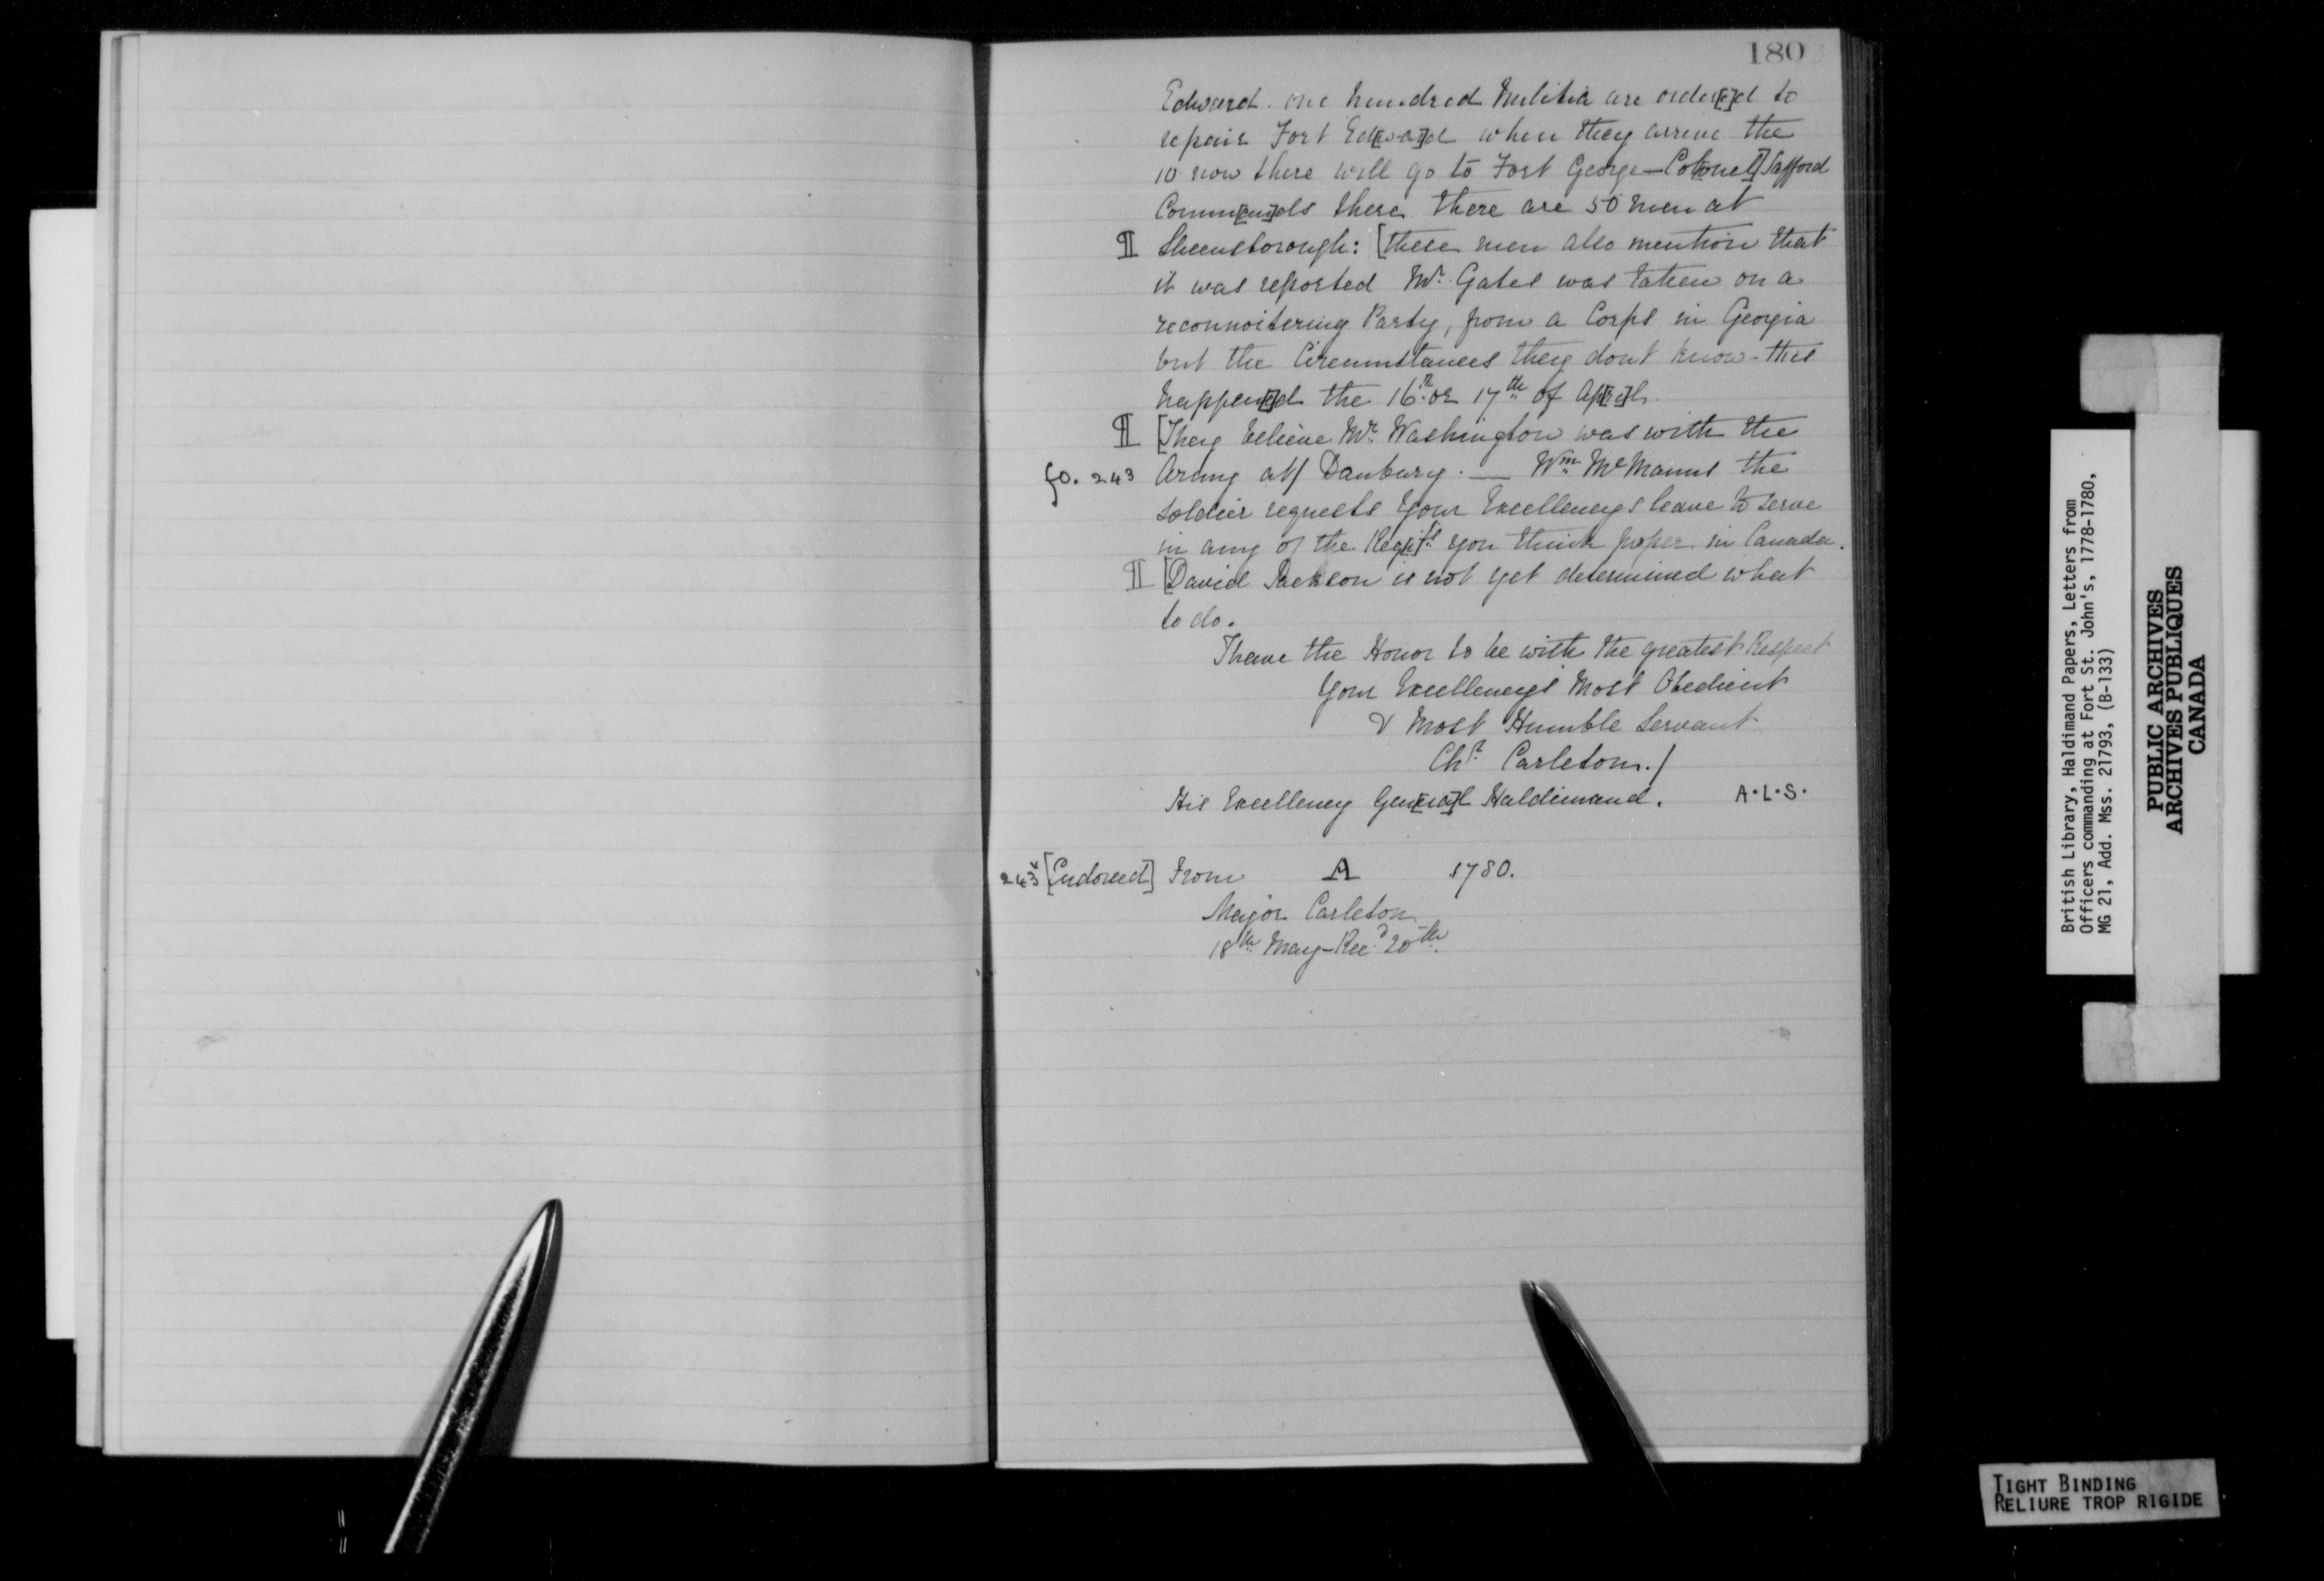 180
Edward. one hundred Militia are order[e]d to
repair Fort Ed[wa]rd when they arrive the
10 now there will go to Fort George—Co[lonel] Safford
Comm[an]ds there there are 50 men at
¶ Skeensborough: [these men also mention that
it was reported Mr. Gates was taken on a
reconnoitering Party, from a Corps in Georgia
but the Circumstances they dont know - this
happen[e]d the 16th or 17th of Ap[ri]l.
¶ [They believe Mr. Washington was with the
fo. 243 Army at/ Danbury. — Wm. McManus the
soldier requests Your Excellencys leave to serve
in any of the Reg[i]ts. you think proper in Canada.
¶ [David Jackson is not yet determined what
to do.
I have the Honor to be with the greatest Respect
Your Excellencys Most Obedient
& Most Humble Servant
Chr. Carleton./
His Excellency Gen[era]l Haldimand. A.L.S.
243v [Endorsed] From A 1780.
Major Carleton
18th May—Recd 20th.
British Library, Haldimand Papers, Letters from
Officers commanding at Fort St. John's, 1778-1780,
MG 21, Add. Mss. 21793, (B-133)
PUBLIC ARCHIVES
ARCHIVES PUBLIQUES
CANADA
TIGHT BINDING
RELIURE TROP RIGIDE